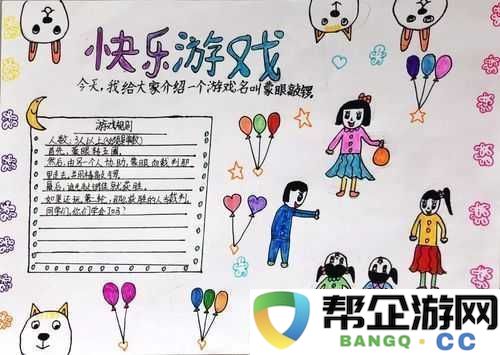 快乐游戏
今天,我给大家介绍一个游戏名叫蒙眼敲锣。
游戏规则
人数:3人以上
首先,蒙眼转五圈
然后,由另一个人协助,蒙眼向裁判那
里走去,去用棒敲大锣
最后,谁先敲倒锣就获胜。
如果还玩,第二轮,那么获胜的人当裁判
同学们,你们学会了吗?
帮企游网
BANGQ.CC